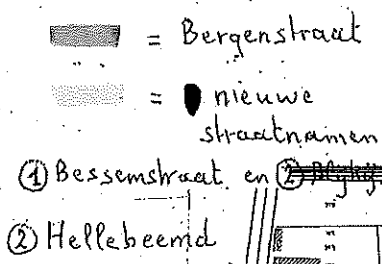 = Bergenstraat
= nieuwe
straatnamen
① Bessemstraat en ②
② Hellebeemd